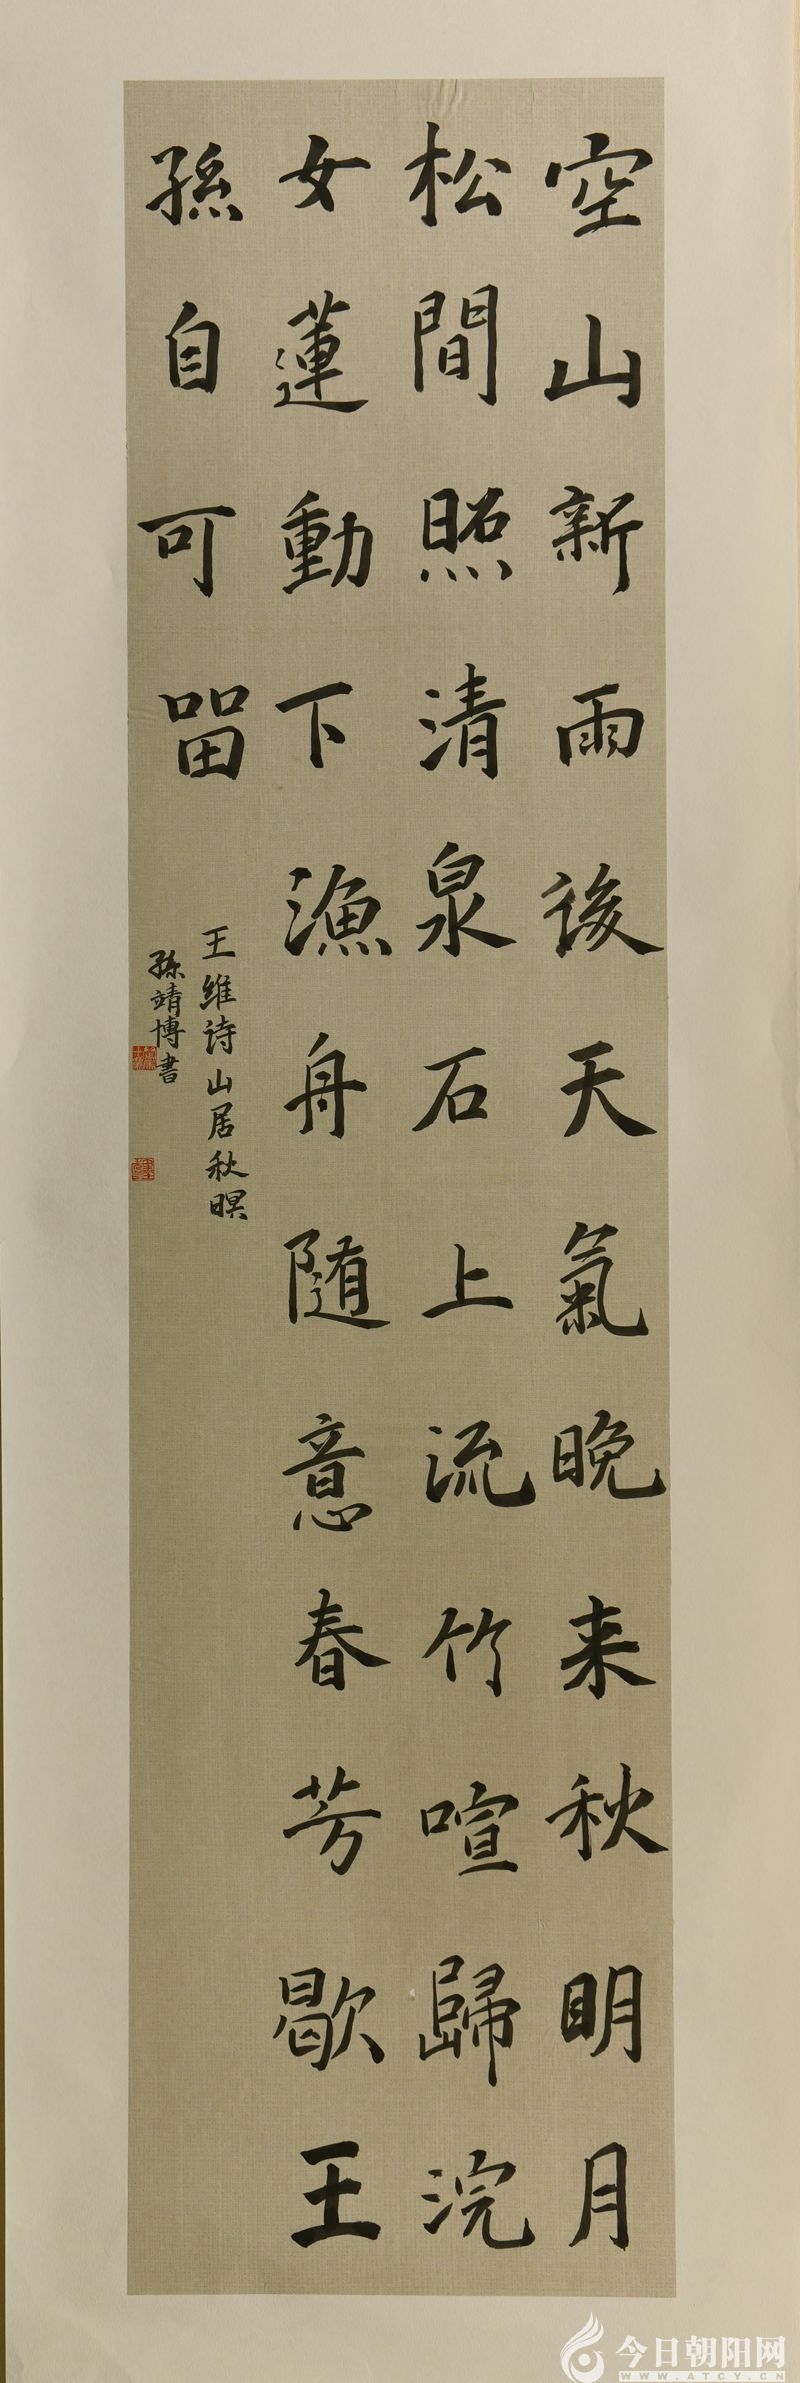 空山新雨後天氣晚来秋明月
松間照清泉石上流竹喧歸浣
女蓮動下漁舟随意春芳歇王
孫自可留
王維诗山居秋暝
孫靖博書
今日朝阳网
WWW.ATCY.CN